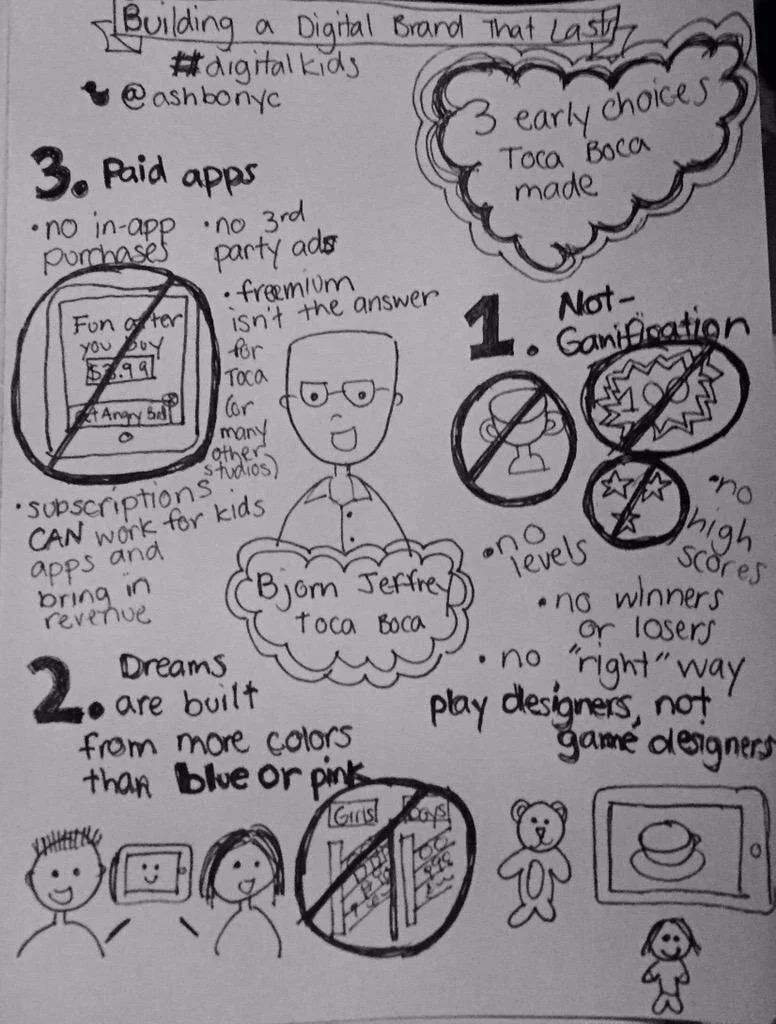 Building a Digital Brand That Lasts
#digitalkids
@ashbonyc
3 early choices
Toca Boca
made
1. Not-
Gamification
100
• no
levels
• no
high
scores
• no winners
or losers
• no "right" way
play designers, not
game designers
2. Dreams
are built
from more colors
than blue or pink
Girls
Boys
3. Paid apps
• no in-app
purchases
• no 3rd
party ads
• freemium
isn't the answer
for
Toca
(or
many
other
studios)
Fun after
you buy
$3.99
Angry Bird
• subscriptions
CAN work for kids
apps and
bring in
revenue
Bjorn Jeffrey
Toca Boca